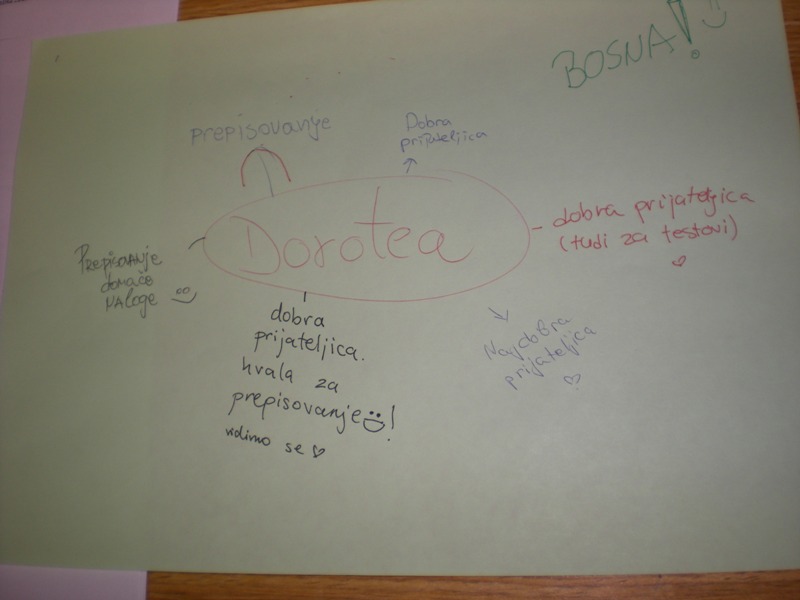 BOSNA!
prepisovanje
Dobra
prijateljica
Dorotea
dobra prijateljica
(tudi za testovi)
Prepisovanje
domače
naloge
dobra
prijateljica.
hvala za
prepisovanje!
vidimo se
Najdobra
prijateljica